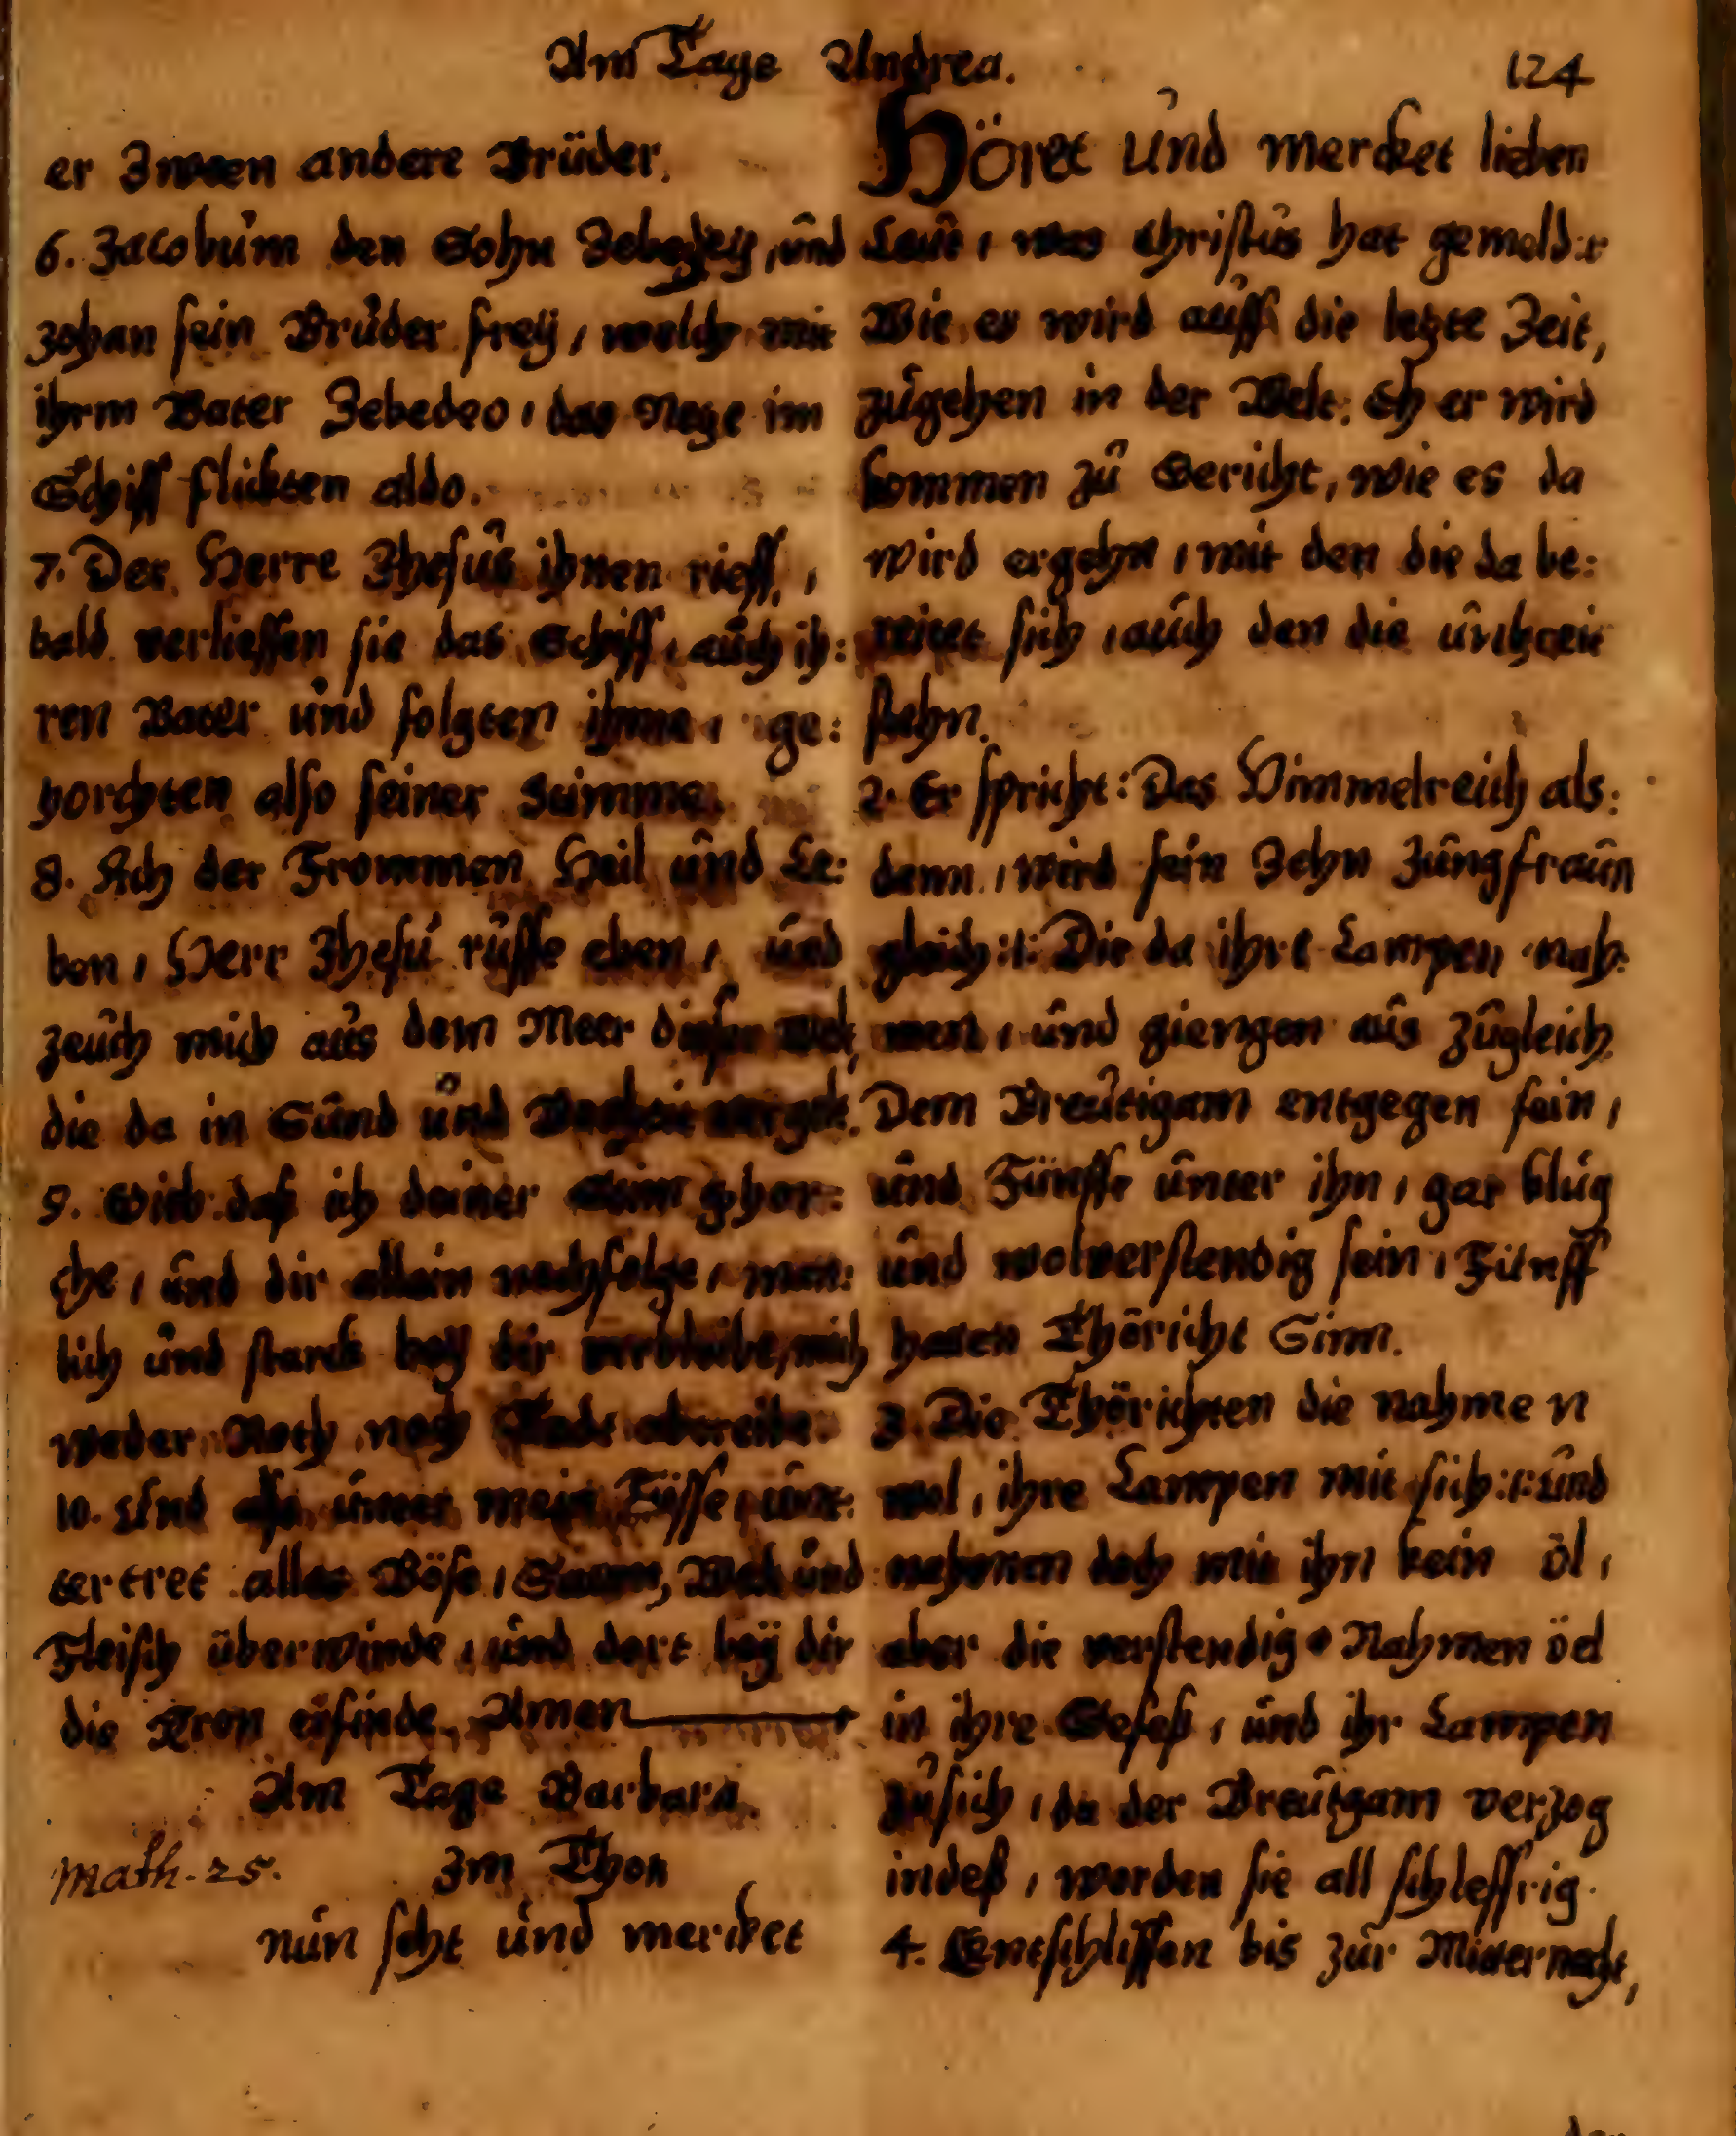 Am Tage Andrea.
124
er Zween andere Brüder.
6. Jacobum den Sohn Zebedeÿ, und
Johan sein Bruder freÿ, welche mit
ihrm Vater Zebedeo, das Netze im
Schiff flickten aldo.
7. Der Herre Jhesus ihnen rieff,
bald verliessen sie das Schiff, auch ih:
ren Vater und folgten ihme, ge:
horchten also seiner Stimme.
8. Ach der Frommen Heil und Le:
ben, Herr Jhesu ruffe eben, und
zeuch mich aus dem Meer dieser Welt,
die da in Sünd und
9. Gieb das ich deiner Stim gehor:
che, und dir allein nachfolge, men:
lich und starck beÿ dir verbleibe, mich
weder Noth noch
10. Und also unter mein Füsse, unt:
tertret alles Böse, Satan, Welt und
Fleisch überwinde, und dort beÿ dir
die Kron erfinde. Amen
Am Tage Barbara.
Math. 25. Im Thon
nun seht und mercket
Höret und mercket lieben
Leut, was Christus hat gemeld:r
Wie es wird auff die letzte Zeit,
zugehen in der Welt: Eh er wird
kommen zu Gericht, wie es da
wird ergehn, mit den die da be:
reitet sich, auch den die unbereit
stehn.
2. Er spricht: Das Himmelreich als:
denn, wird sein Zehn Jungfraun
gleich:/: Die da ihre Lampen nah:
men, und giengen aus zugleich
Dem Breutigam entgegen fein,
und Fünffe unter ihn, gar klug
und wolverstendig sein, Fünff
hatten Thöricht Sinn.
3. Die Thörichten die nahmen
wol, ihre Lampen mit sich:/: und
nahmen doch mit ihn kein öl,
aber die verstendig Nahmen öel
in ihre Gefeß, und ihr Lampen
zu sich, da der Breutgam verzog
indeß, worden sie all schleffrig.
4. Entschlieffen bis zur Mitternacht,